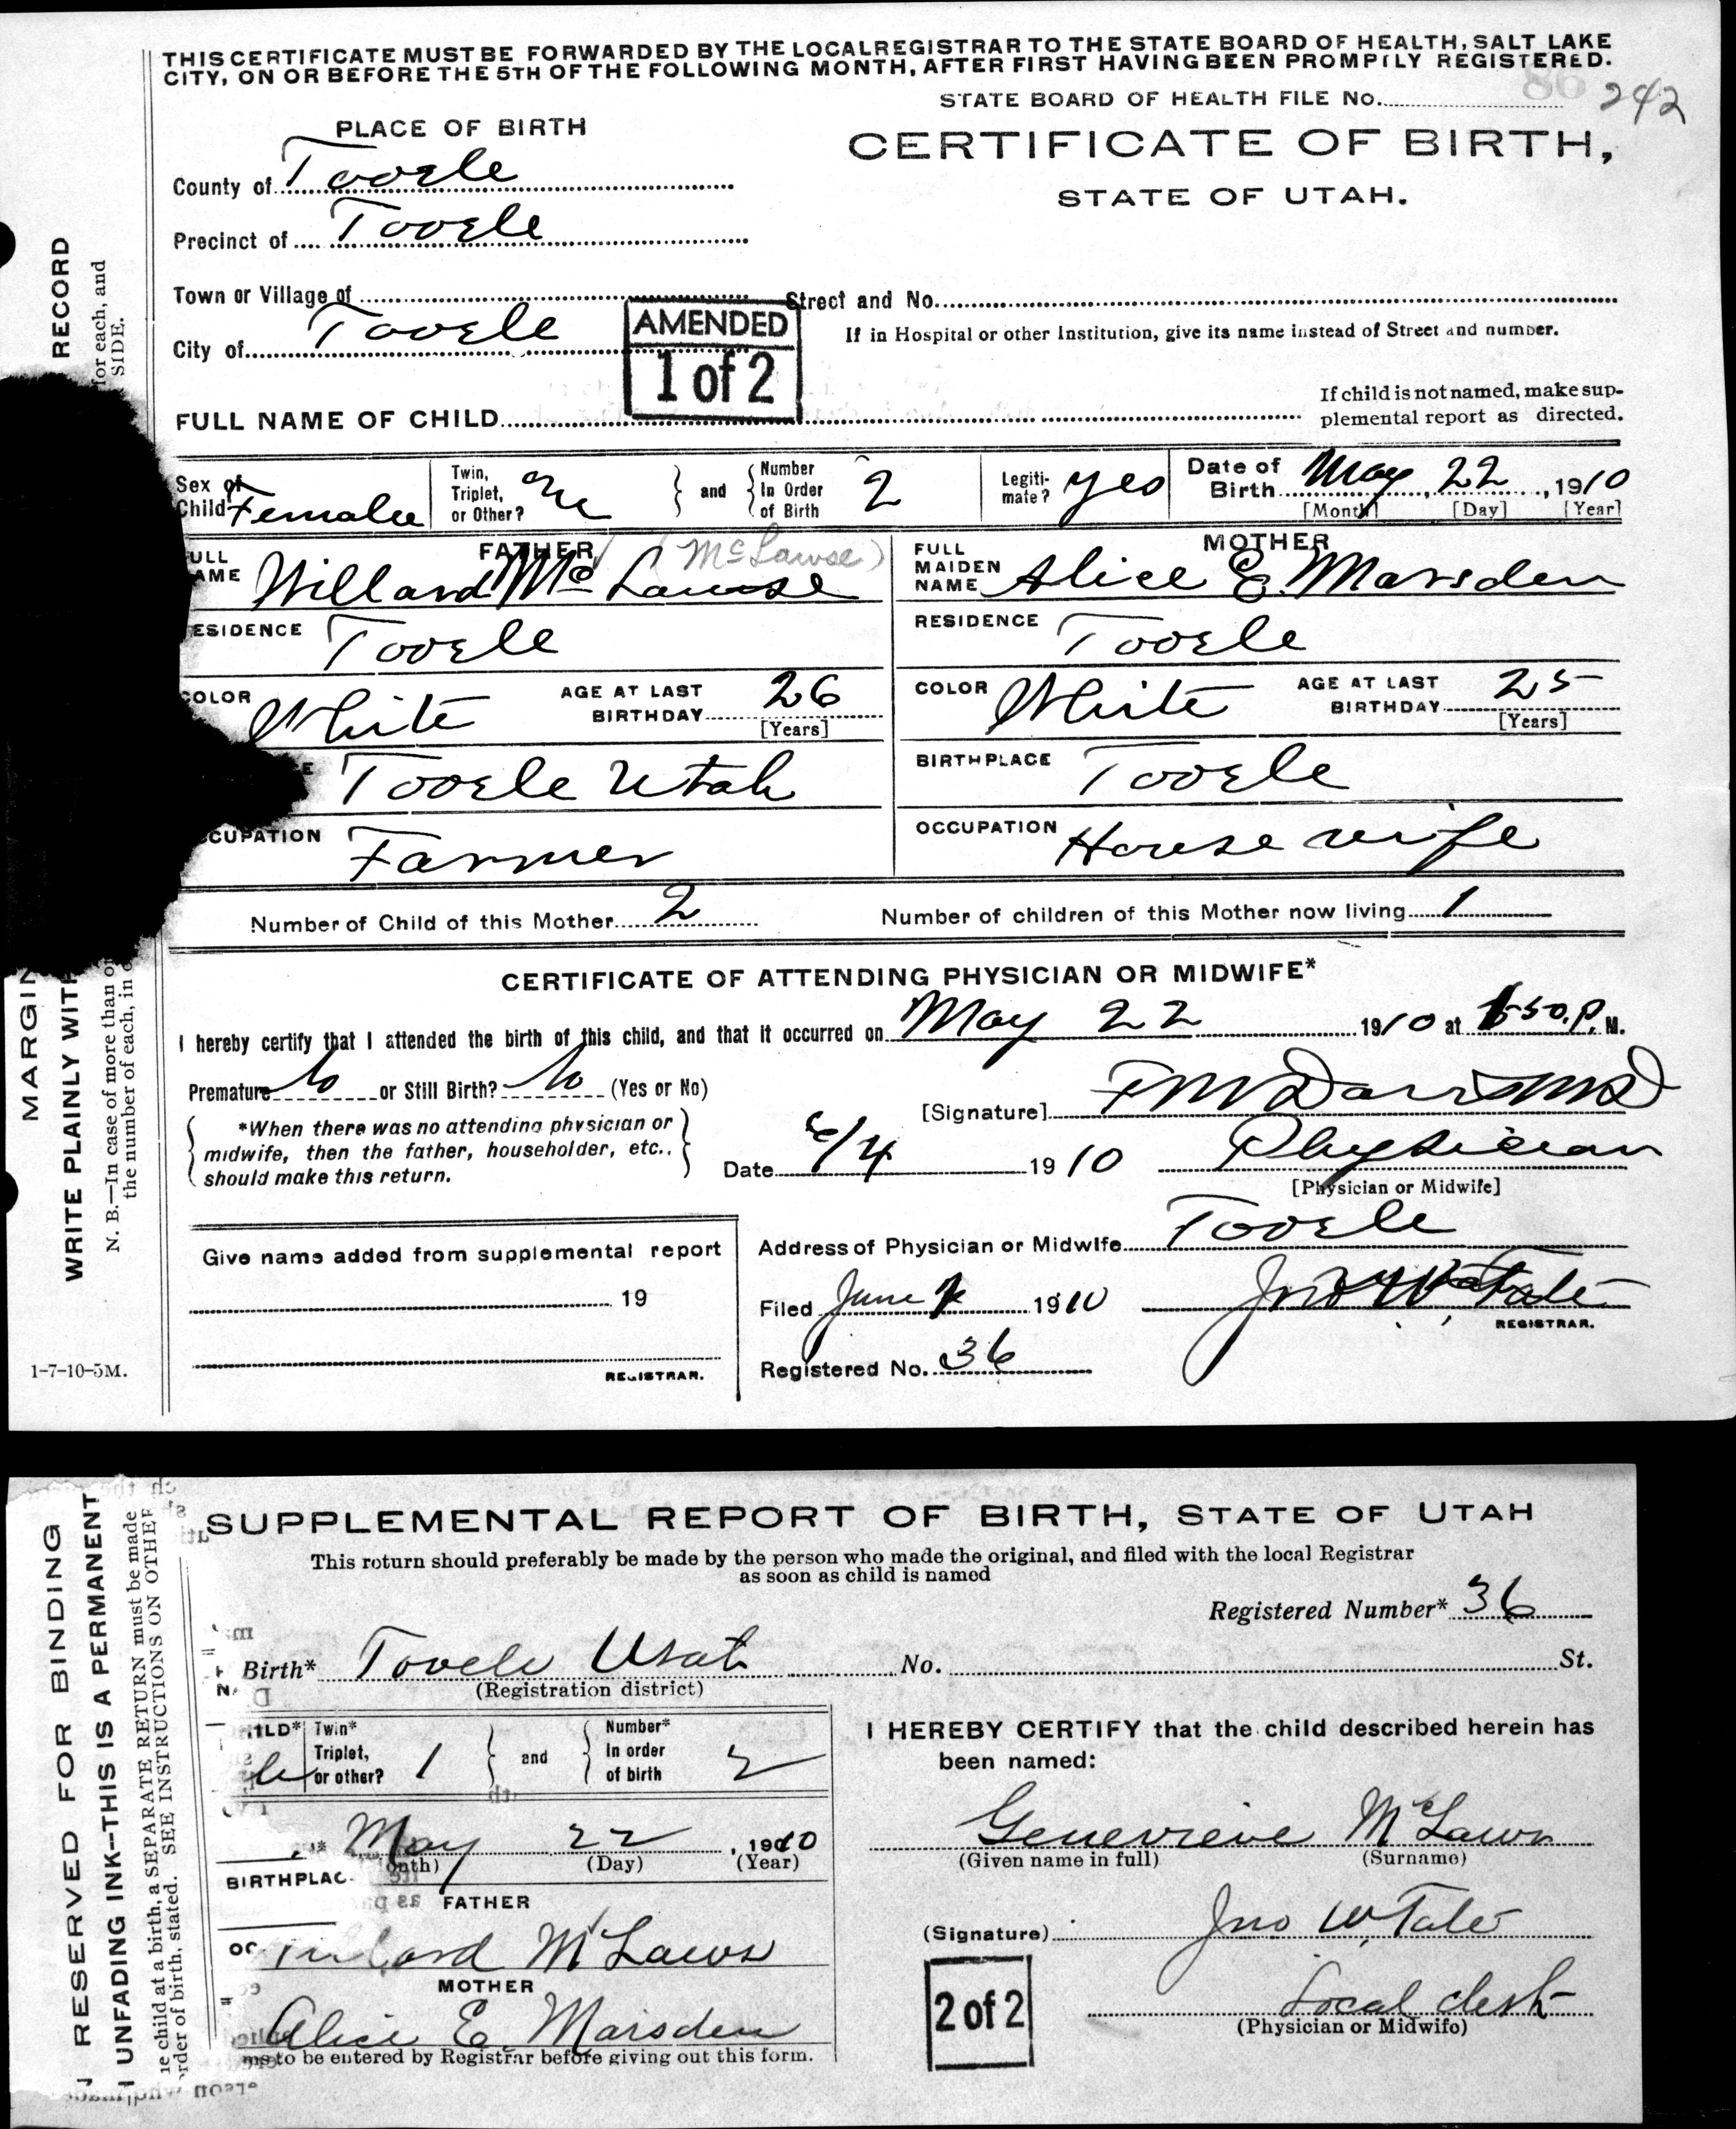 THIS CERTIFICATE MUST BE FORWARDED BY THE LOCAL REGISTRAR TO THE STATE BOARD OF HEALTH, SALT LAKE
CITY, ON OR BEFORE THE 5TH OF THE FOLLOWING MONTH, AFTER FIRST HAVING BEEN PROMPTLY REGISTERED.
86 242
STATE BOARD OF HEALTH FILE No.
PLACE OF BIRTH
CERTIFICATE OF BIRTH,
STATE OF UTAH.
County of Tooele
Precinct of Tooele
Town or Village of Street and No.
If in Hospital or other Institution, give its name instead of Street and number.
City of Tooele
AMENDED
1 of 2
FULL NAME OF CHILD
If child is not named, make sup-
plemental report as directed.
Sex of Child Female
Twin, Triplet, or Other? and Number In Order of Birth 2
Legiti-mate? yes
Date of Birth May 22, 1910
[Month] [Day] [Year]
FATHER (McLawse)
ULL AME Willard Mc Lawse
MOTHER
FULL MAIDEN NAME Alice E. Marsden
ESIDENCE Tooele
RESIDENCE Tooele
COLOR White AGE AT LAST BIRTHDAY 26 [Years]
COLOR White AGE AT LAST BIRTHDAY 25 [Years]
E Tooele Utah
BIRTHPLACE Tooele
CCUPATION Farmer
OCCUPATION House wife
Number of Child of this Mother 2 Number of children of this Mother now living 1
CERTIFICATE OF ATTENDING PHYSICIAN OR MIDWIFE*
I hereby certify that I attended the birth of this child, and that it occurred on May 22 1910 at 50 P. M.
Premature No or Still Birth? No (Yes or No)
[Signature] Davis MD
*When there was no attending physician or
midwife, then the father, householder, etc.,
should make this return.
Date 6/4 1910 Physician
[Physician or Midwife]
Address of Physician or Midwife Tooele
Give name added from supplemental report
19
REGISTRAR.
Filed June 1910 Jno W Tate
REGISTRAR.
Registered No. 36
1-7-10-5M.
MARGIN
WRITE PLAINLY WITH
RECORD
N. B.—In case of more than on
the number of each, in o
for each, and
SIDE.
SUPPLEMENTAL REPORT OF BIRTH, STATE OF UTAH
This return should preferably be made by the person who made the original, and filed with the local Registrar
as soon as child is named
Registered Number* 36
Birth* Tooele Utah No. St.
(Registration district)
HILD* le Twin* Triplet, or other? 1 and Number* In order of birth 2
I HEREBY CERTIFY that the child described herein has
been named:
May 22, 1910
onth) (Day) (Year)
Genevieve McLaws
(Given name in full) (Surname)
BIRTHPLAC
FATHER
lard McLaws
(Signature) Jno W Tate
MOTHER
Alice E. Marsden
2 of 2
Local clerk
(Physician or Midwife)
ms to be entered by Registrar before giving out this form.
RESERVED FOR BINDING
UNFADING INK—THIS IS A PERMANENT
child at a birth, a SEPARATE RETURN must be made
rder of birth, stated. SEE INSTRUCTIONS ON OTHER